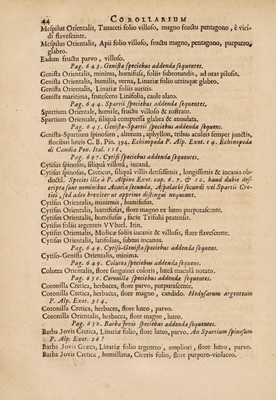 44 COROLLARIUM
Mespilus Orientalis, Tanaceti folio villoso, magno fructu pentagono, è viri-
di flavescente.
Mespilus Orientalis, Apii folio villoso, fructu magno, pentagono, purpureo,
glabro.
Eadem fructu parvo, villoso.
Pag. 643. Genistæ speciebus addenda sequentes.
Genista Orientalis, minima, humifusa, foliis subrotundis, ad oras pilosis.
Genista Orientalis, humilis, verna, Linariæ folio utrinque glabro.
Genista Orientalis, Linariæ foliis auritis.
Genista maritima, frutescens Lindbolia, caule alato.
Pag. 644. Spartii speciebus addenda sequentes.
Spartium Orientale, humile, fructu villoso & rostrato.
Spartium Orientale, siliquâ compressâ glabra & annulata.
Pag. 645. Genistæ-Spartii speciebus addenda sequentes.
Genista-Spartium spinosum, alterum, aphyllum, tribus aculeis semper junctis,
floribus luteis C. B. Pin. 394. Echinopoda P. Alp. Exot. 14. Echinopoda
di Candia Pon. Ital. 118.
Pag. 647. Cytisi speciebus addenda sequentes.
Cytisus spinosus, siliquâ villosâ, incanâ.
Cytisus spinosus, Creticus, siliquâ villis densissimis, longissimis & incanis ob-
ductâ. Species illa à P. Alpino Exot. cap. 6. 7. & 12. haud dubiè des-
cripta sunt nominibus Acacia secunda, Aspalathi secundi vel Spartii Cre-
tici, sed adeo breviter ut apprimè distingui nequeant.
Cytisus Orientalis, minimus, humifusus.
Cytisus Orientalis, humifusus, flore magno ex luteo purpurascente.
Cytisus Orientalis, humifusus, facie Trifolii pratensis.
Cytisus foliis argenteis VVheel. Itin.
Cytisus Orientalis, Medicæ foliis incanis & villosis, flore flavescente.
Cytisus Orientalis, latifolius, subtus incanus.
Pag. 649. Cytiso-Genistæ speciebus addenda sequens.
Cytiso-Genista Orientalis, minima.
Pag. 649. Coluteæ speciebus addenda sequens.
Colutea Orientalis, flore sanguinei coloris, luteâ maculâ notato.
Pag. 650. Coronillæ speciebus addenda sequentes.
Coronilla Cretica, herbacea, flore parvo, purpurascente.
Coronilla Cretica, herbacea, flore magno, candido. Hedysarum argenteum
P. Alp. Exot. 314.
Coronilla Cretica, herbacea, flore parvo, luteo.
Coronilla Orientalis, herbacea, flore magno, luteo.
Pag. 650. Barbæ Jovis speciebus addenda sequentes.
Barba Jovis Cretica, Linariæ folio, flore luteo, parvo. An Spartium spinosum
P. Alp. Exot.
Barba Jovis Græca, Linariæ folio argenteo, ampliori, flore luteo, parvo.
Barba Jovis Cretica, humillima, Ciceris folio, flore purpureo-violaceo.